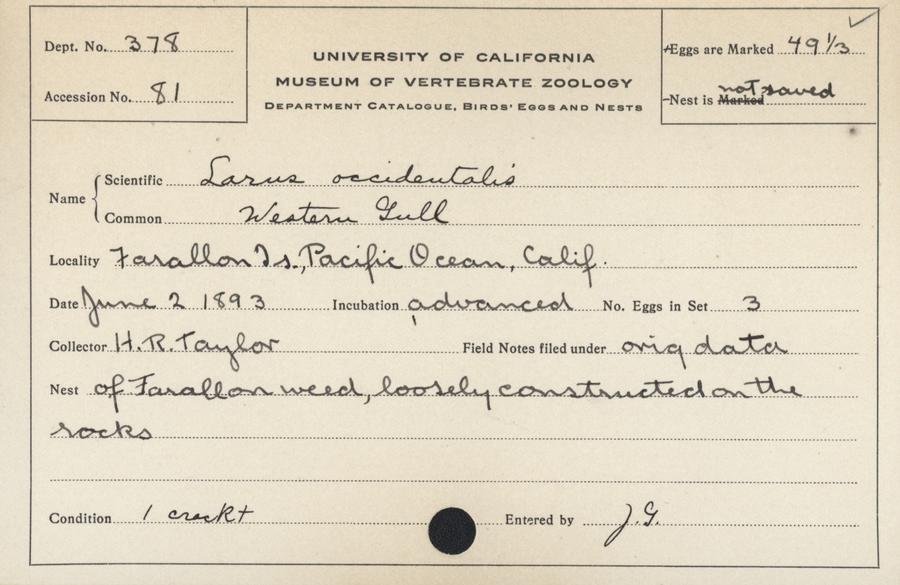 Dept. No. 378
Accession No. 81
UNIVERSITY OF CALIFORNIA
MUSEUM OF VERTEBRATE ZOOLOGY
DEPARTMENT CATALOGUE, BIRDS' EGGS AND NESTS
Eggs are Marked 49 1/3
not saved
Nest is Marked
Name
Scientific Larus occidentalis
Common Western Gull
Locality Farallon Is., Pacific Ocean, Calif.
Date June 2 1893 Incubation advanced No. Eggs in Set 3
Collector H.R. Taylor Field Notes filed under orig data
Nest of Farallon weed, loosely constructed on the
rocks
Condition 1 crackt Entered by J.G.